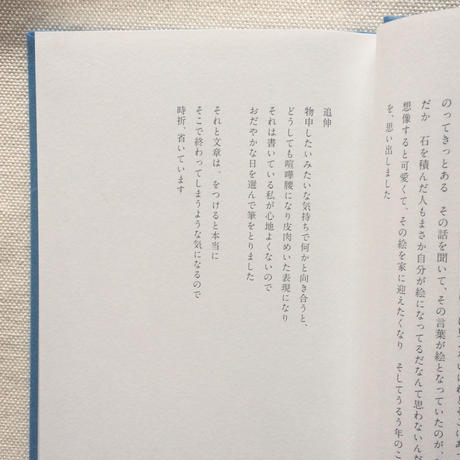 のってきっとある　その話を聞いて、その言葉が絵となっていたのが、
だか　石を積んだ人もまさか自分が絵になってるだなんて思わないんだ
想像すると可愛くて、その絵を家に迎えたくなり　そしてうるう年のこ
を、思い出しました
追伸
物申したいみたいな気持ちで何かと向き合うと、
どうしても喧嘩腰になり皮肉めいた表現になり
それは書いている私が心地よくないので
おだやかな日を選んで筆をとりました
それと文章は、。をつけると本当に
そこで終わってしまうような気になるので
時折、省いています